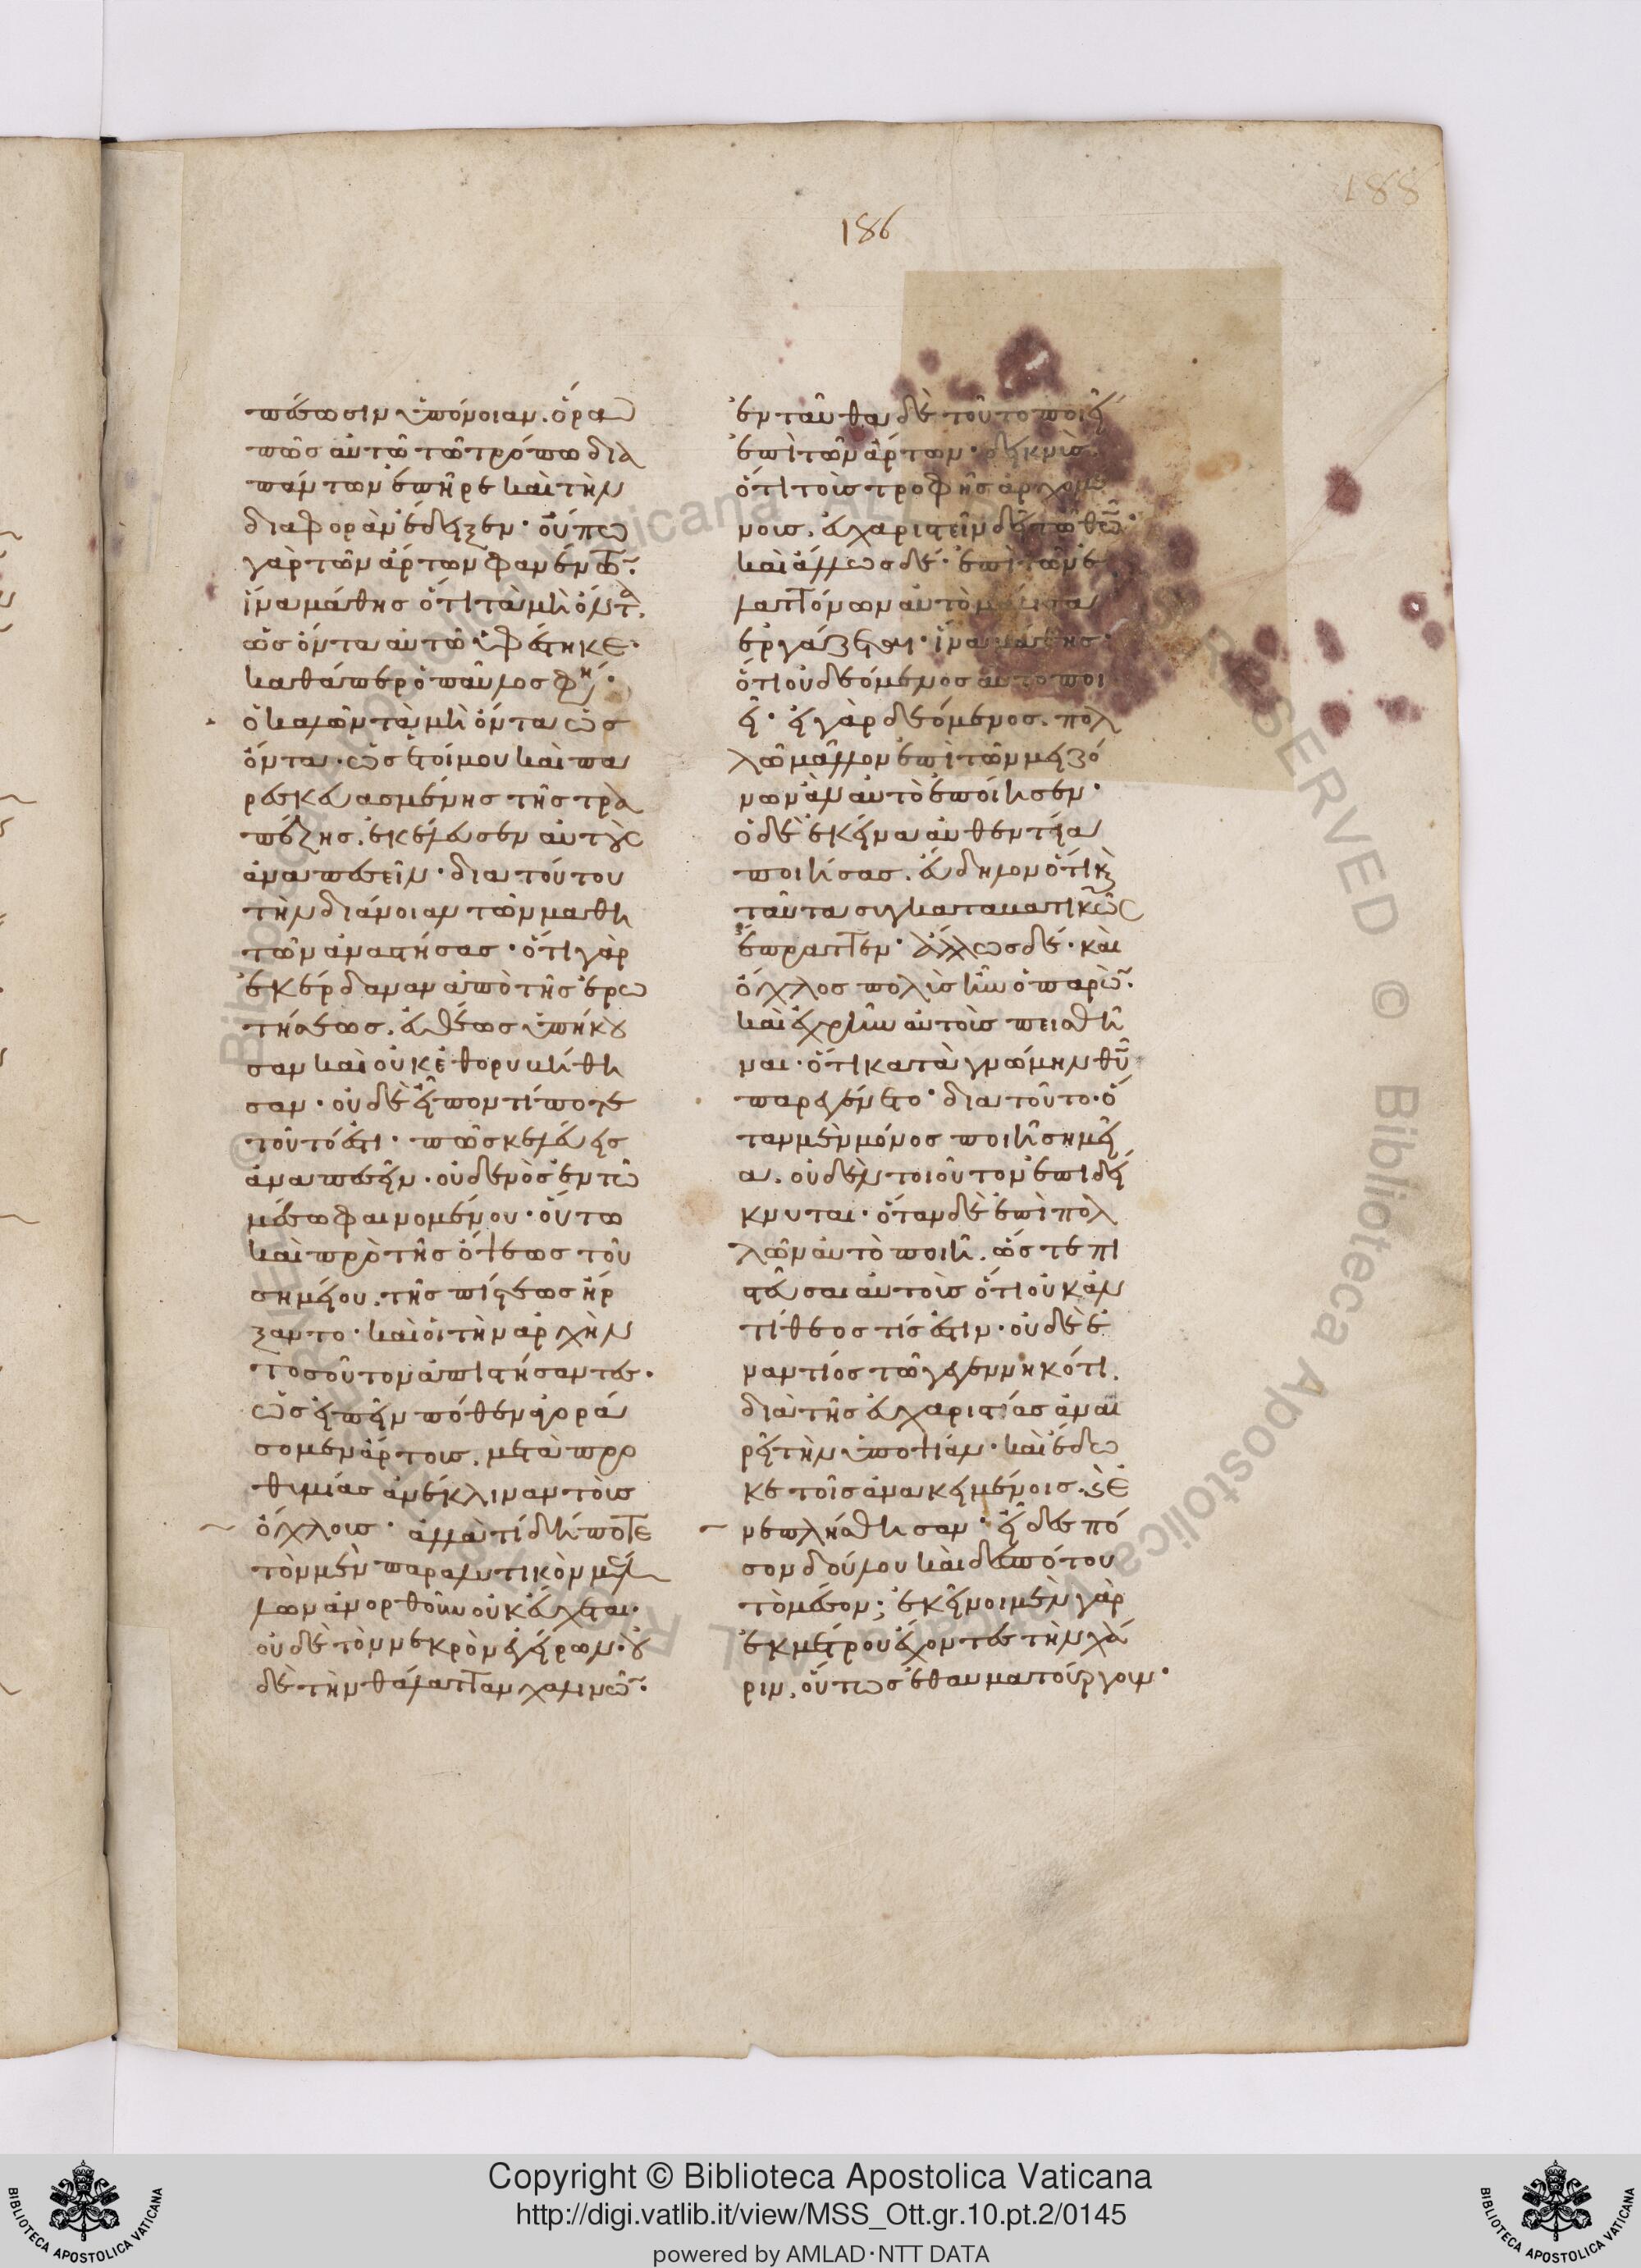 188
186
πέσωσιν ὑπόνοιαν. ὅρα
πῶς αὐτῶ τῶ τρόπω διὰ
πάντων ἐπῆρε καὶ τὴν
διαφορὰν ἔδειξεν· οὔπω
γὰρ τῶν ἄρτων φανέντ(ων)·
ἵνα μάθης ὅτι τὰ μὴ ὄντα,
ὡς ὄντα αὐτῶ ὑφέστηκε·
καθάπερ ὁ παῦλος φησί·
ὁ καλῶν τὰ μὴ ὄντα ὡς
ὄντα· ὡς ἑτοίμου καὶ πα
ρεσκευασμένης τῆς τρα
πέζης. ἐκέλευσεν αὐτοὺς
ἀναπεσεῖν· δια τούτου
τὴν διάνοιαν τῶν μαθη
τῶν ἀναστήσας· ὅτι γὰρ
ἐκέρδαναν ἀπὸ τῆς ἐρω
τήσεως. εὐθέως ὑπήκου
σαν καὶ οὐκ ἐθορυβήθη
σαν· οὐδὲ εἶπον τί ποτε
τοῦτό ἐστι· πῶς κελεύεις
ἀναπεσεῖν· οὐδενὸς ἐν τῶ
μέσω φαινομένου· οὕτω
καὶ πρὸ τῆς ὄψεως τοῦ
σημείου. τῆς πίστεως ἤρ
ξαντο· καὶ οἱ τὴν ἀρχὴν
τοσοῦτον ἀπιστήσαντες·
ὡς εἰπεῖν πόθεν ἀγορά
σομεν ἄρτοις. μετὰ προ
θυμίας ἀνέκλιναν τοὺς
ὄχλους· ἀλλὰ τί δήποτε
τὸν μὲν παραλυτικὸν μέλ
λων ἀνορθοῦν οὐκ εὔχεται·
οὐδὲ τὸν νεκρὸν ἐγείρων· οὐ
δὲ τὴν θάλατταν χαλινῶν·
ἐνταῦθα δὲ τοῦτο ποιεῖ
ἐπὶ τῶν ἄρτων· δεικνὺς
ὅτι τοὺς τροφῆς ἀρχομέ
νους. εὐχαριστεῖν δεῖ τῶ θεῶ·
καὶ ἄλλως δέ· ἐπὶ τῶν ἐ
λαττόνων αὐτὸ μάλιστα
ἐργάζεται· ἵνα μάθης·
ὅτι οὐ δεόμενος αὐτὸ ποι
εῖ· εἰ γὰρ δεόμενος. πολ
λῶ μᾶλλον ἐπὶ τῶν μειζό
νων ἂν αὐτὸ ἐποίησεν·
ὁ δὲ ἐκεῖνα αὐθεντία
ποιήσας. εὔδηλον ὅτι καὶ
ταῦτα συγκαταβατικῶς
ἔπραττεν· ἄλλως δέ· καὶ
ὄχλος πολὺς ἦν ὁ παρών·
καὶ ἐχρῆν αὐτοὺς πεισθῆ
ναι· ὅτι κατὰ γνώμην θεοῦ
παρεγένετο· δια τοῦτο· ὅ
ταν μὲν μόνος ποιήση μεῖ
α. οὐδὲν τοιοῦτον ἐπιδεί
κνυται· ὅταν δὲ ἐπὶ πολ
λῶν αὐτὸ ποιῆ. ὥστε πι
στεῦσαι αὐτοὺς ὅτι οὐκ ἀν
τίθεος τίς ἐστιν· οὐδὲ ἐ
ναντίος τῶ γεγεννηκότι.
διὰ τῆς εὐχαριστίας ἀναι
ρεῖ τὴν ὑποψίαν· καὶ ἔδω
κε τοῖς ἀνακειμένοις· καὶ ἐ
νεπλήσθησαν· εἶδες πό
σον δούλου καὶ δεσπότου
τὸ μέσον; ἐκεῖνοι μὲν γὰρ
ἐκ μέτρου ἔχοντες τὴν χά
ριν, οὕτως ἐθαυματούργουν·
Copyright © Biblioteca Apostolica Vaticana
http://digi.vatlib.it/view/MSS_Ott.gr.10.pt.2/0145
powered by AMLAD·NTT DATA